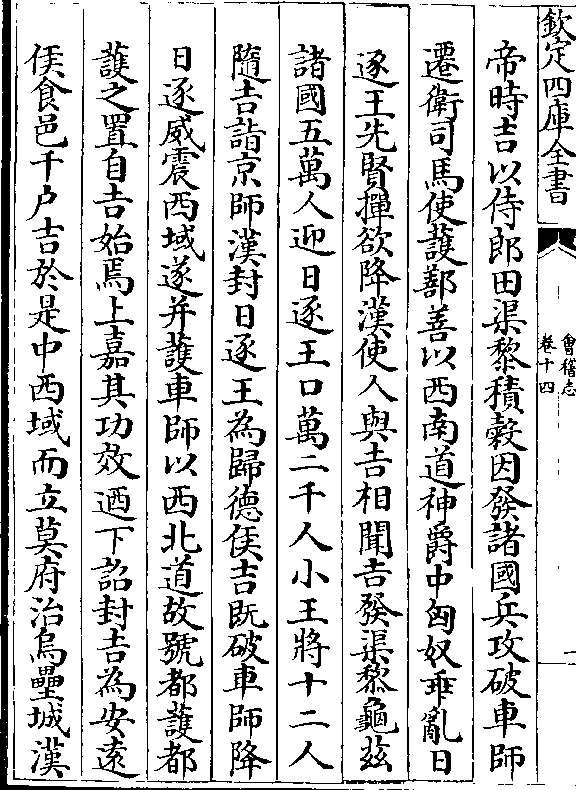 欽定四庫全書
會稽志
卷十四
帝時吉以侍郎田渠黎積糓因發諸國兵攻破車師
遷衛司馬使䕶鄯善以西南道神爵中匈奴乖亂日
逐王先賢撣欲降漢使人與吉相聞吉發渠黎龜兹
諸國五萬人迎日逐王口萬二千人小王將十二人
隨吉詣京師漢封日逐王為歸德侯吉既破車師降
日逐威震西域遂并䕶車師以西北道故號都䕶都
䕶之置自吉始焉上嘉其功效廼下詔封吉為安逺
侯食邑千户吉於是中西域而立莫府治烏壘城漢